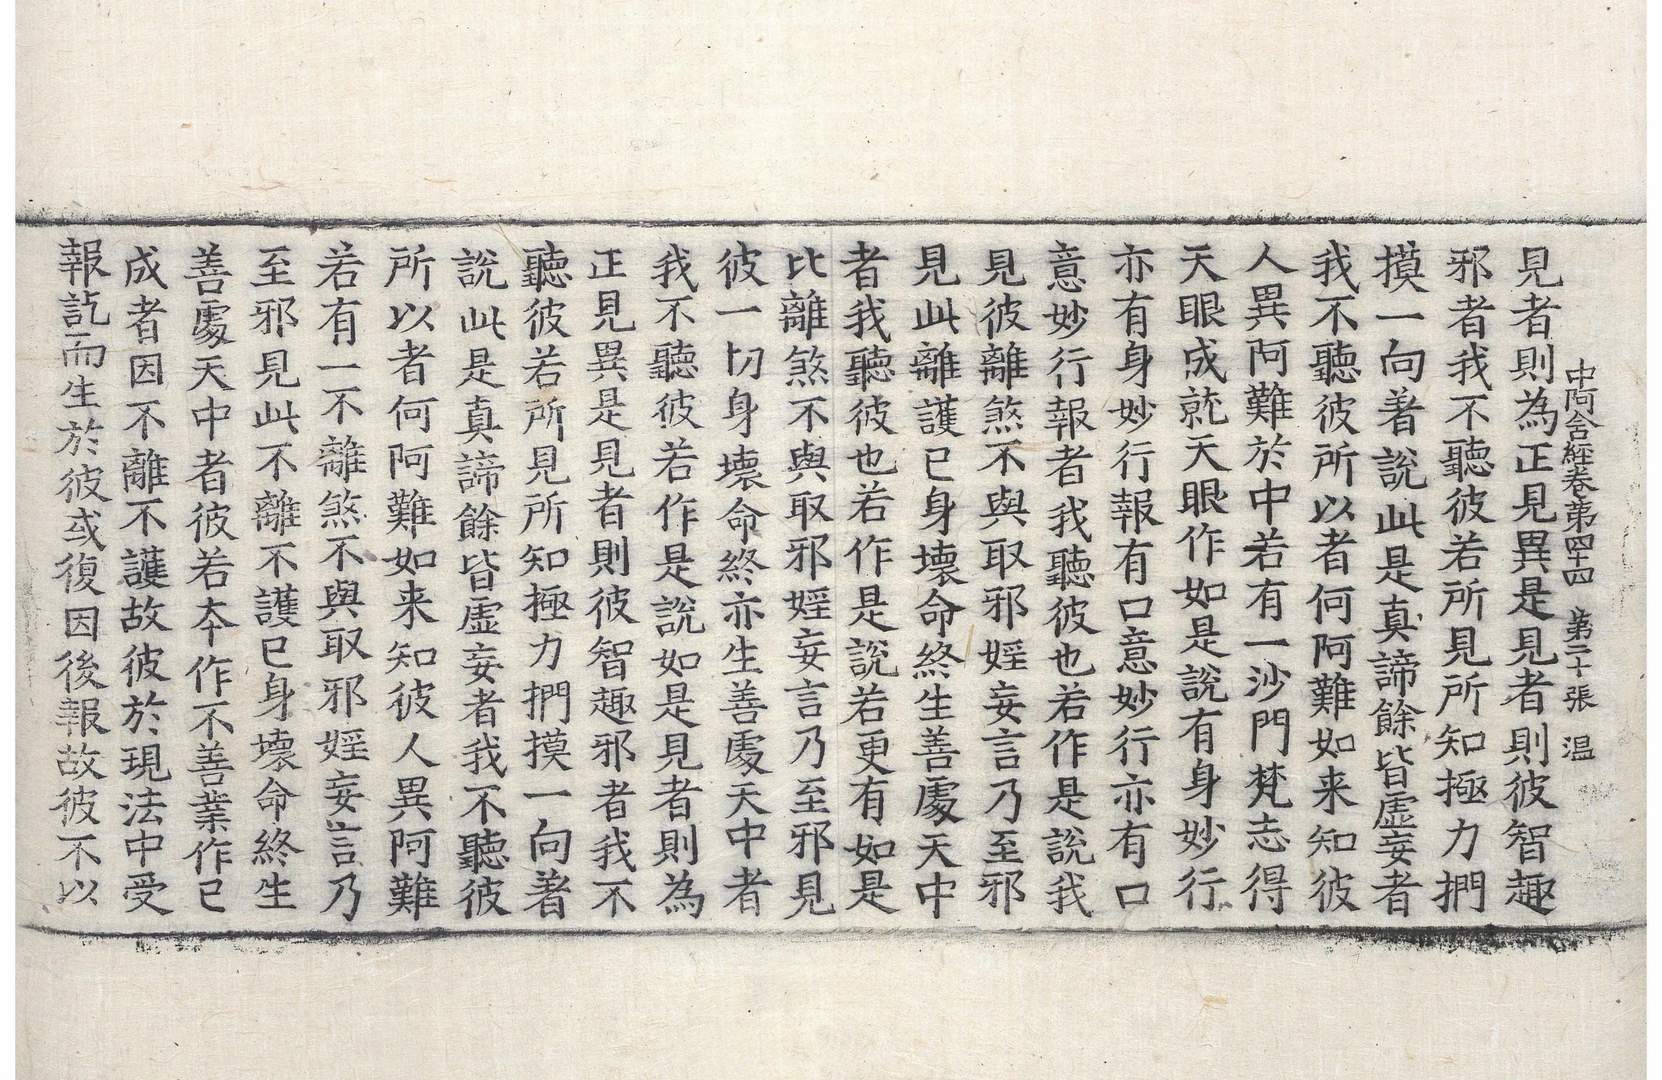 中阿含經卷第四十四　第二十張　温
見者則為正見異是見者則彼智趣
邪者我不聽彼若所見所知極力捫
摸一向著說此是真諦餘皆虛妄者
我不聽彼所以者何阿難如来知彼
人異阿難於中若有一沙門梵志得
天眼成就天眼作如是說有身妙行
亦有身妙行報有口意妙行亦有口
意妙行報者我聽彼也若作是說我
見彼離煞不與取邪婬妄言乃至邪
見此離護已身壞命終生善處天中
者我聽彼也若作是說若更有如是
比離煞不與取邪婬妄言乃至邪見
彼一切身壞命終亦生善處天中者
我不聽彼若作是說如是見者則為
正見異是見者則彼智趣邪者我不
聽彼若所見所知極力捫摸一向著
說此是真諦餘皆虛妄者我不聽彼
所以者何阿難如来知彼人異阿難
若有一不離煞不與取邪婬妄言乃
至邪見此不離不護已身壞命終生
善處天中者彼若夲作不善業作已
成者因不離不護故彼於現法中受
報訖而生於彼或復因後報故彼不以